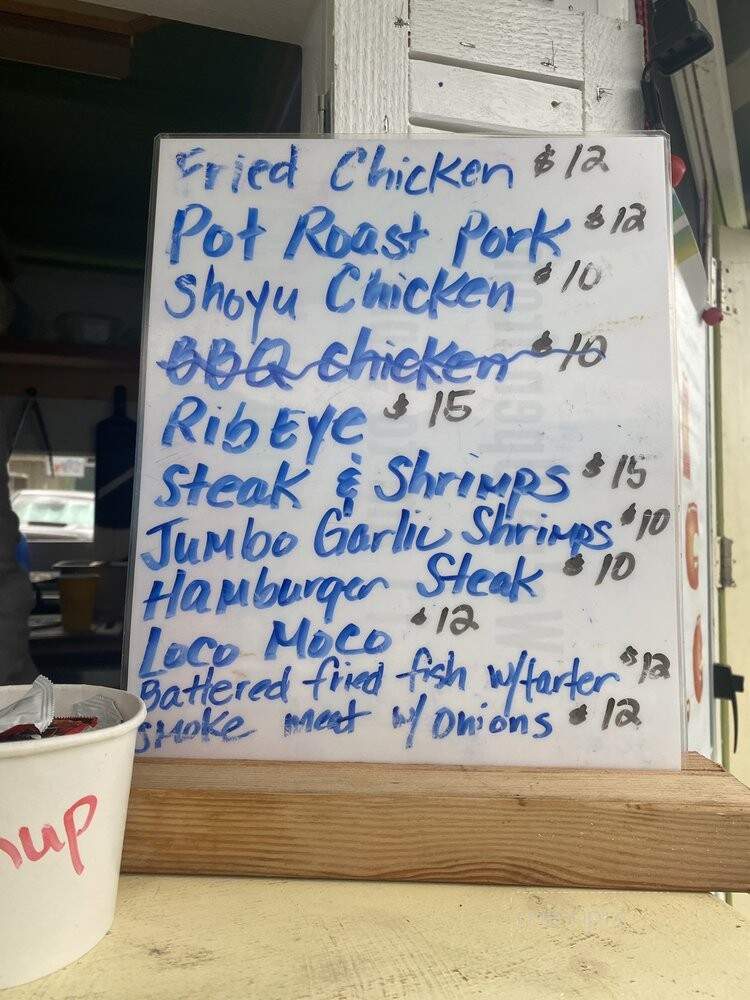 Fried Chicken $12
Pot Roast Pork $12
Shoyu Chicken $10
BBQ Chicken $10
RibEye $15
Steak & Shrimps $15
Jumbo Garlic Shrimps $10
Hamburger Steak $10
Loco Moco $12
Battered fried fish w/tarter $12
Smoke meat w/ Onions $12
up